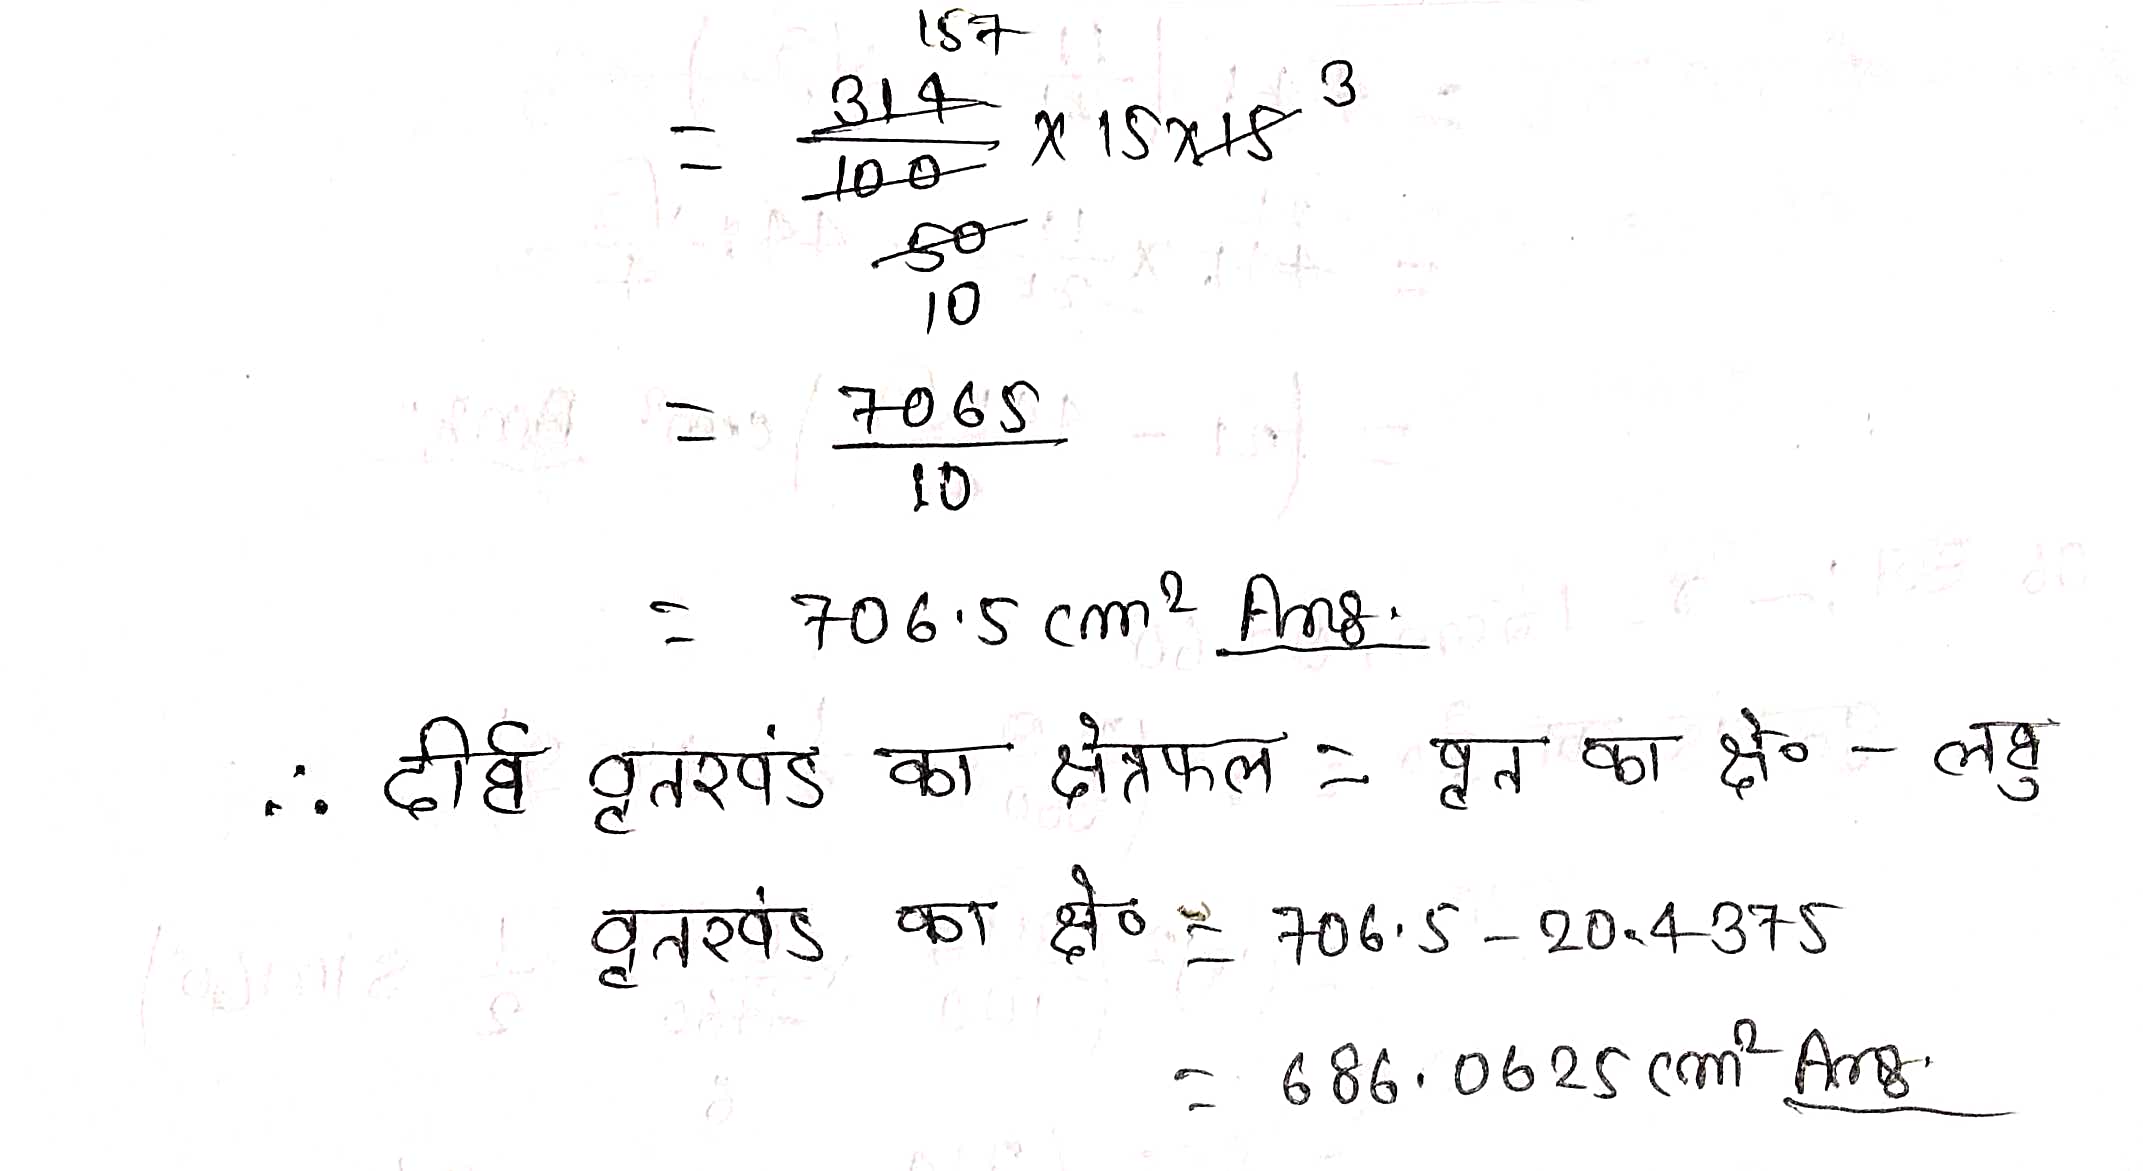 157
= 314/100 × 15 × 15 3
50
10
= 7065/10
= 706.5 cm² Ans.
∴ दीर्घ वृतखंड का क्षेत्रफल = वृत का क्षे० - लघु
वृतखंड का क्षे० = 706.5 - 20.4375
= 686.0625 cm² Ans.